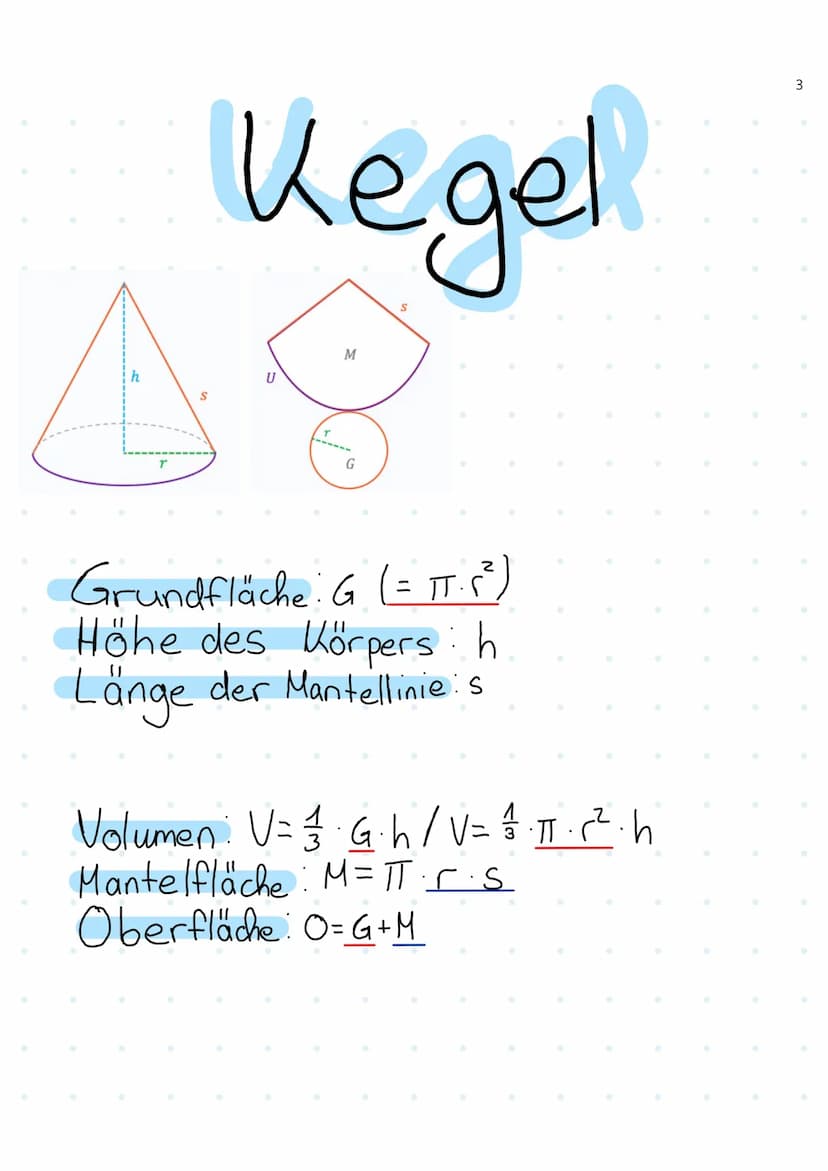 3
Kegel
h
s
r
s
M
U
r
G
Grundfläche: G (= π·r²)
Höhe des Körpers: h
Länge der Mantellinie: s
Volumen: V= 1/3 · G·h / V= 1/3 ·π·r²·h
Mantelfläche: M= π·r·s
Oberfläche: O=G+M